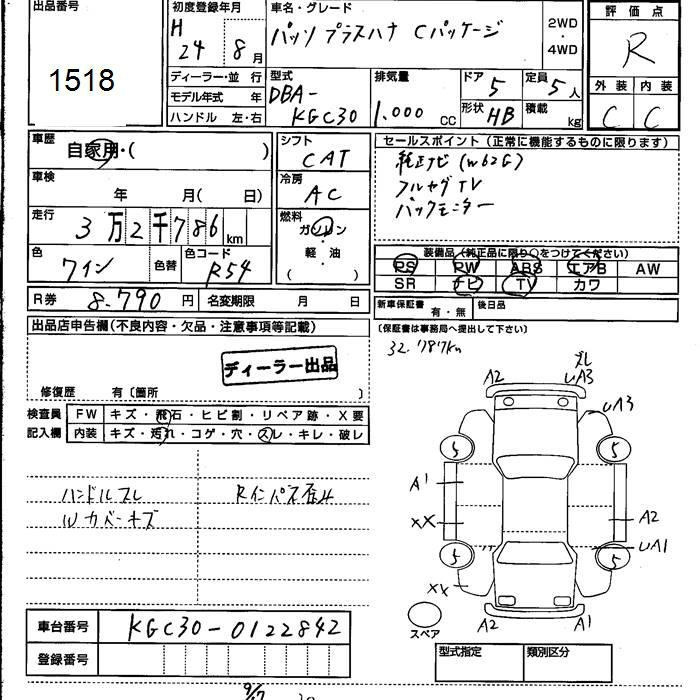 出品番号
1518
初度登録年月
H
24 8月
車名・グレード
パッソ プラスハナ Cパッケージ
2WD
・
4WD
評価点
R
外装 内装
C C
ディーラー・並行
モデル年式 年
ハンドル 左・右
型式
DBA-
KGC30
排気量
1.000 cc
ドア 5
形状 HB
定員 5人
積載 kg
車歴
自家用・( )
車検
年 月( 日)
走行
3万2千786km
色
ワイン
色替
色コード
R54
シフト
CAT
冷房
AC
燃料
ガソリン
・
軽・油
( )
セールスポイント(正常に機能するものに限ります)
純正ナビ(W62G)
フルセグTV
バックモニター
装備品(純正品に限り○をつけてください)
PS PW ABS エアB AW
SR ナビ TV カワ
R券 8.790円
名変期限 月 日
新車保証書 有・無
後日品
(保証書は事務局へ提出して下さい)
32.787km
出品店申告欄(不良内容・欠品・注意事項等記載)
ディーラー出品
修復歴 有〔箇所 〕
検査員
記入欄
FW キズ・飛石・ヒビ割・リペア跡・X要
内装 キズ・汚れ・コゲ・穴・スレ・キレ・破レ
ハンドルスレ
Wカバーキズ
Rインパネ歪み
A2
ズレ
UA3
UA3
5 5
A1
XX
A2
UA1
5 5
XX
スペア
A2 A1
車台番号
KGC30-0122842
登録番号
型式指定
類別区分